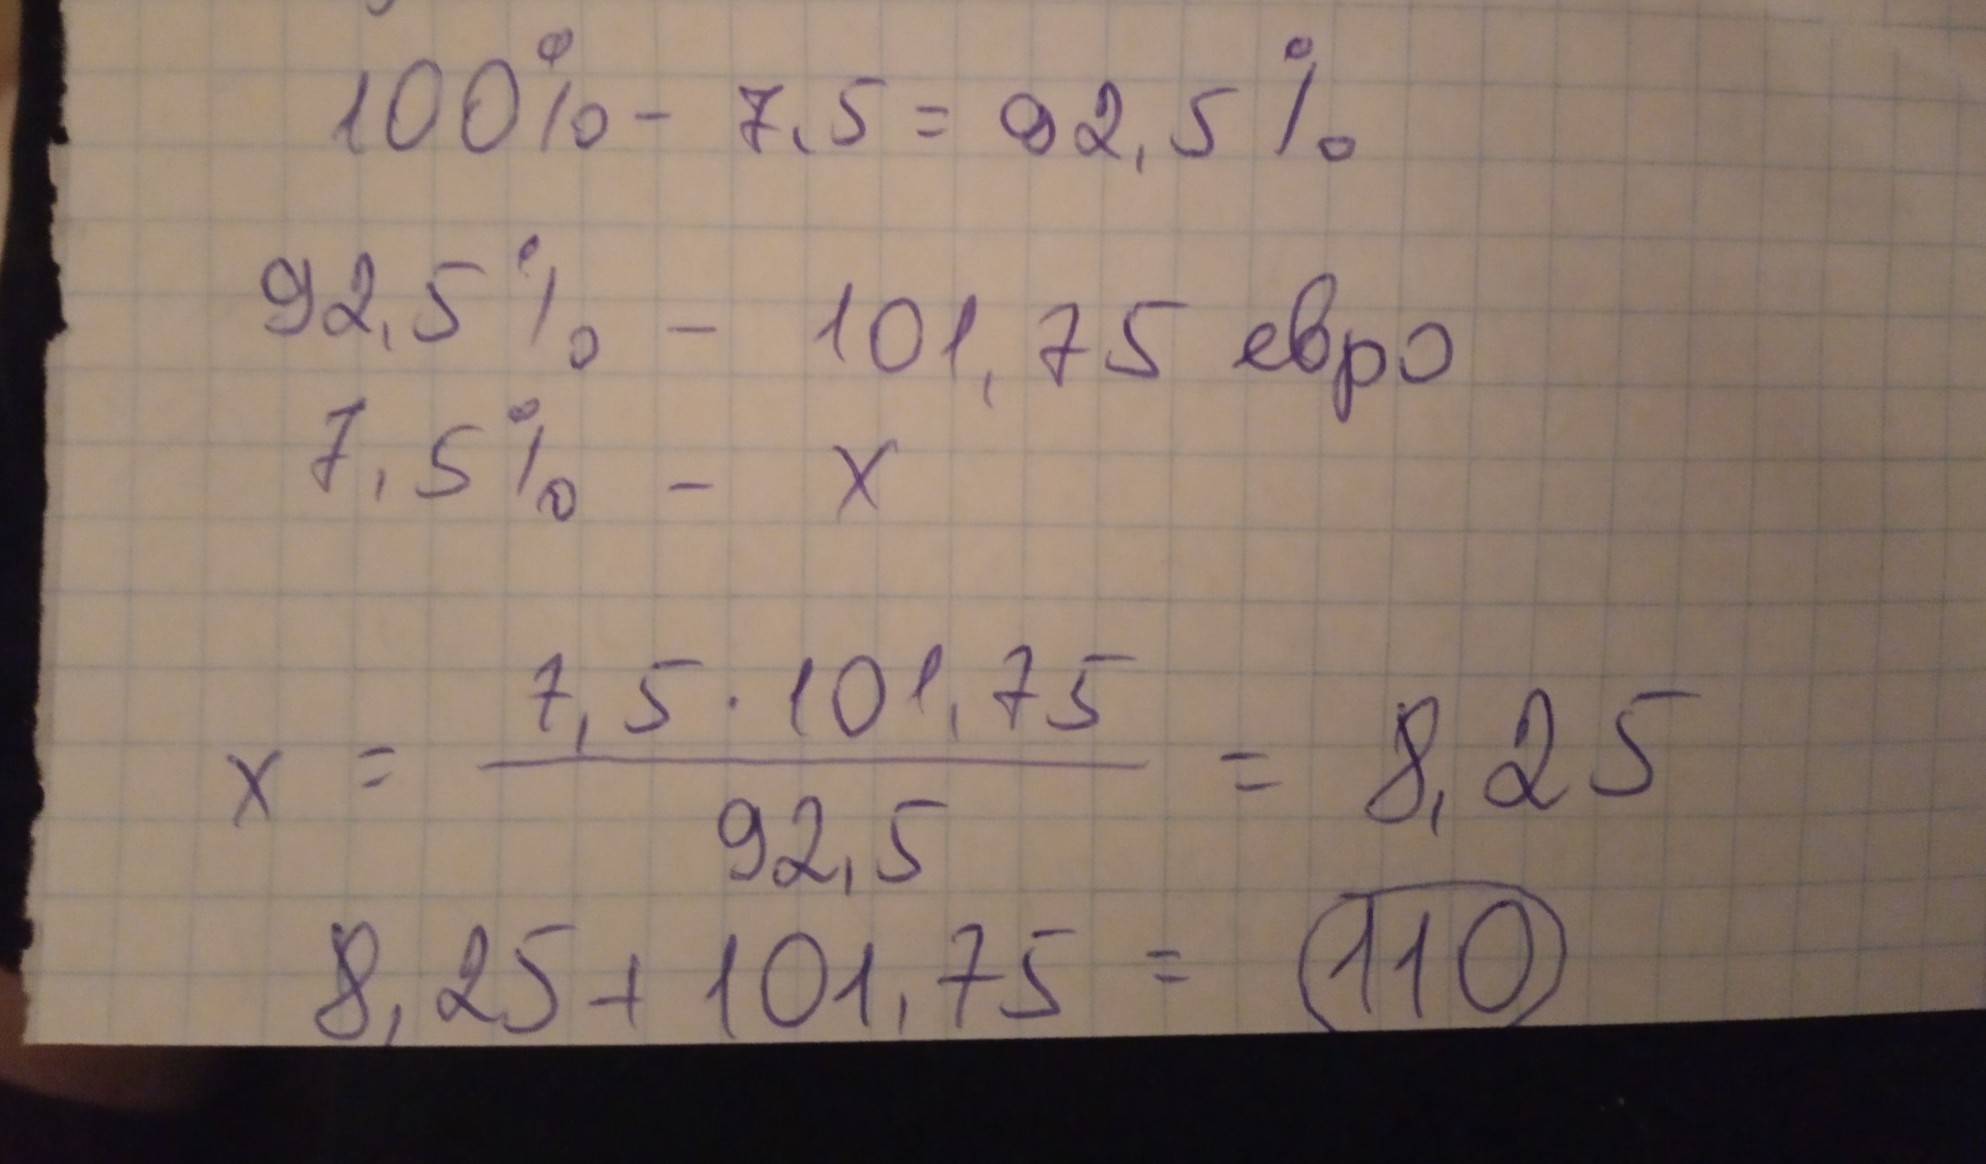 100% - 7,5 = 92,5%
92,5% - 101,75 евро
7,5% - x
x = 7,5 · 101,75 / 92,5 = 8,25
8,25 + 101,75 = 110